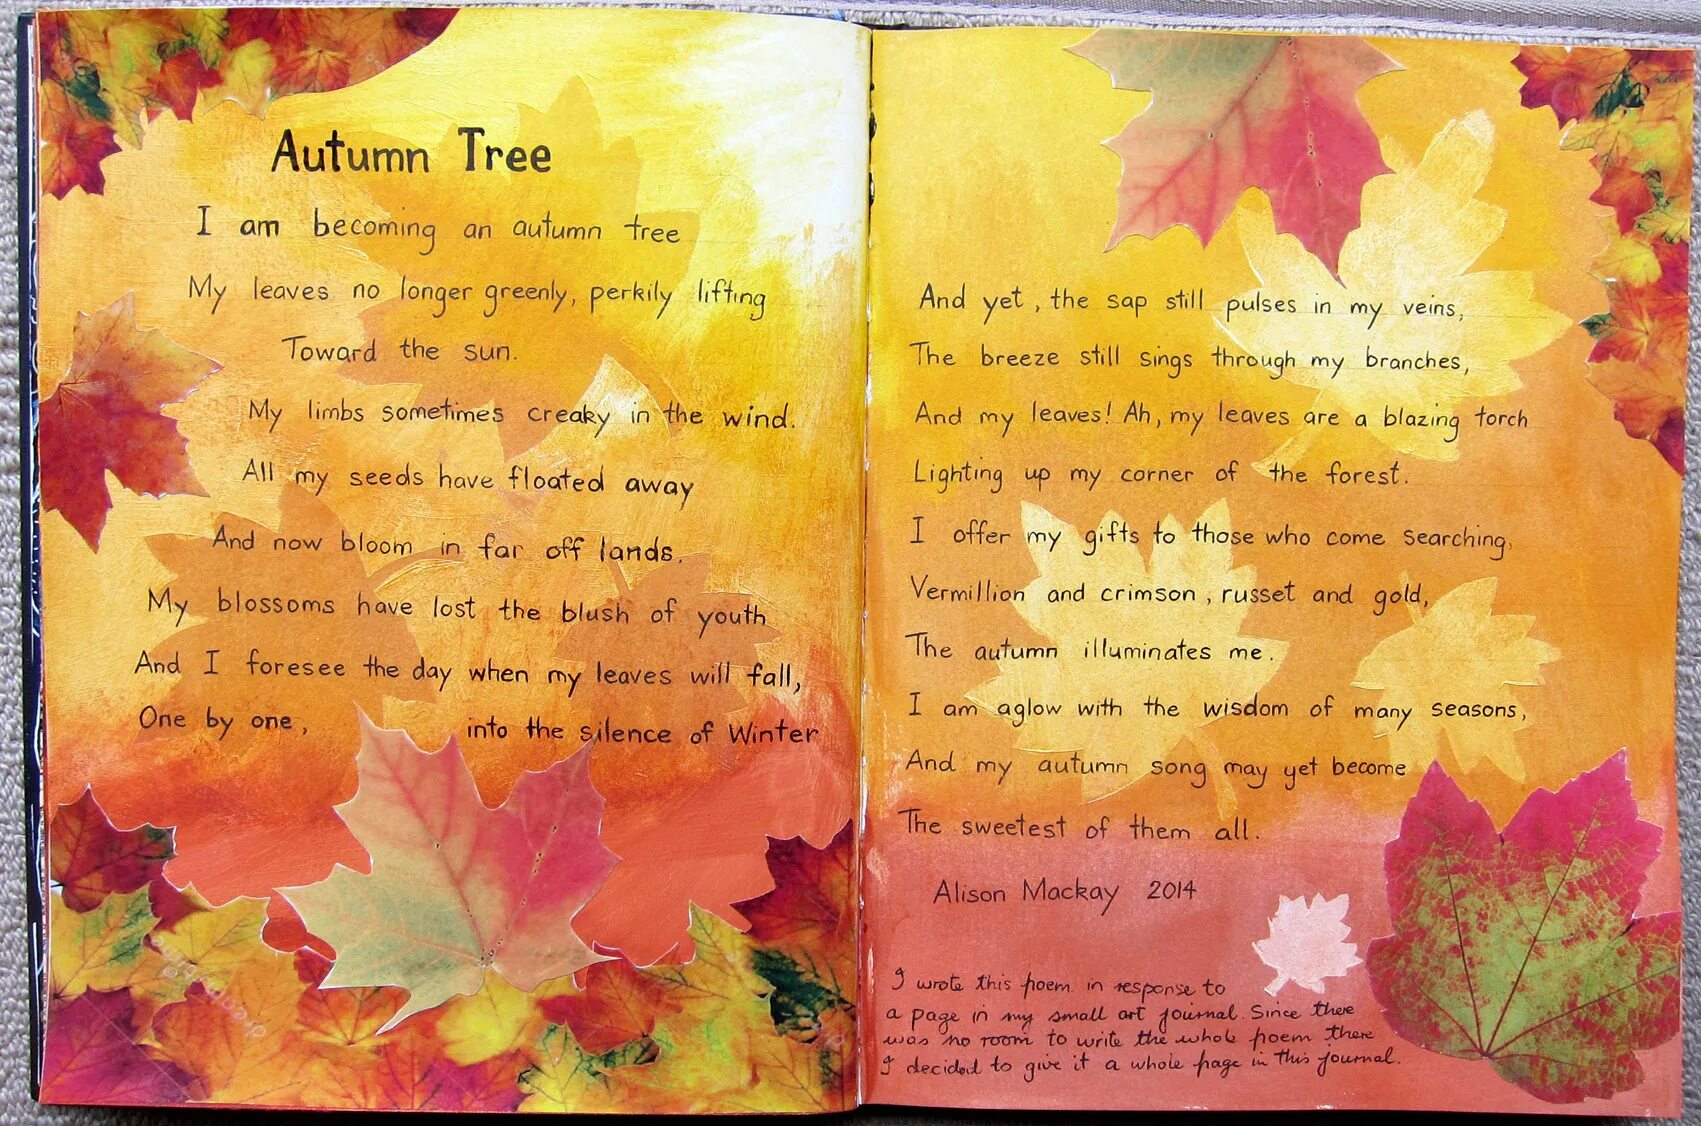 Autumn Tree
I am becoming an autumn tree
My leaves no longer greenly, perkily lifting
Toward the sun.
My limbs sometimes creaky in the wind.
All my seeds have floated away
And now bloom in far off lands.
My blossoms have lost the blush of youth
And I foresee the day when my leaves will fall,
One by one, into the silence of Winter
And yet, the sap still pulses in my veins,
The breeze still sings through my branches,
And my leaves! Ah, my leaves are a blazing torch
Lighting up my corner of the forest.
I offer my gifts to those who come searching,
Vermillion and crimson, russet and gold,
The autumn illuminates me.
I am aglow with the wisdom of many seasons,
And my autumn song may yet become
The sweetest of them all.
Alison Mackay 2014
I wrote this poem in response to
a page in my small art journal. Since there
was no room to write the whole poem there
I decided to give it a whole page in this journal.